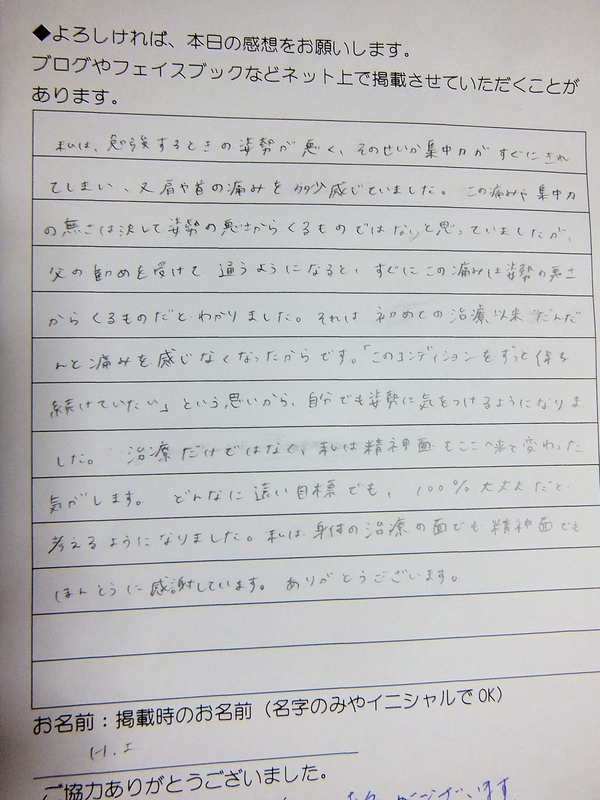 ◆よろしければ、本日の感想をお願いします。
ブログやフェイスブックなどネット上で掲載させていただくことが
あります。
私は、勉強するときの姿勢が悪く、そのせいか集中力がすぐにきれ
てしまい、又肩や首の痛みを多少感じていました。この痛みや集中力
の無さは決して姿勢の悪さからくるものではないと思っていましたが、
父の勧めを受けて通うようになると、すぐにこの痛みは姿勢の悪さ
からくるものだとわかりました。それは初めての治療以来だんだ
んと痛みを感じなくなったからです。「このコンディションをずっと保ち
続けていたい」という思いから、自分でも姿勢に気をつけるようになりま
した。治療だけではなく、私は精神面もここへ来て変わった
気がします。どんなに遠い目標でも、100%大丈夫だと
考えるようになりました。私は身体の治療の面でも精神面でも
ほんとうに感謝しています。ありがとうございます。
お名前：掲載時のお名前（名字のみやイニシャルでOK）
H.I.
ご協力ありがとうございました。
ございます